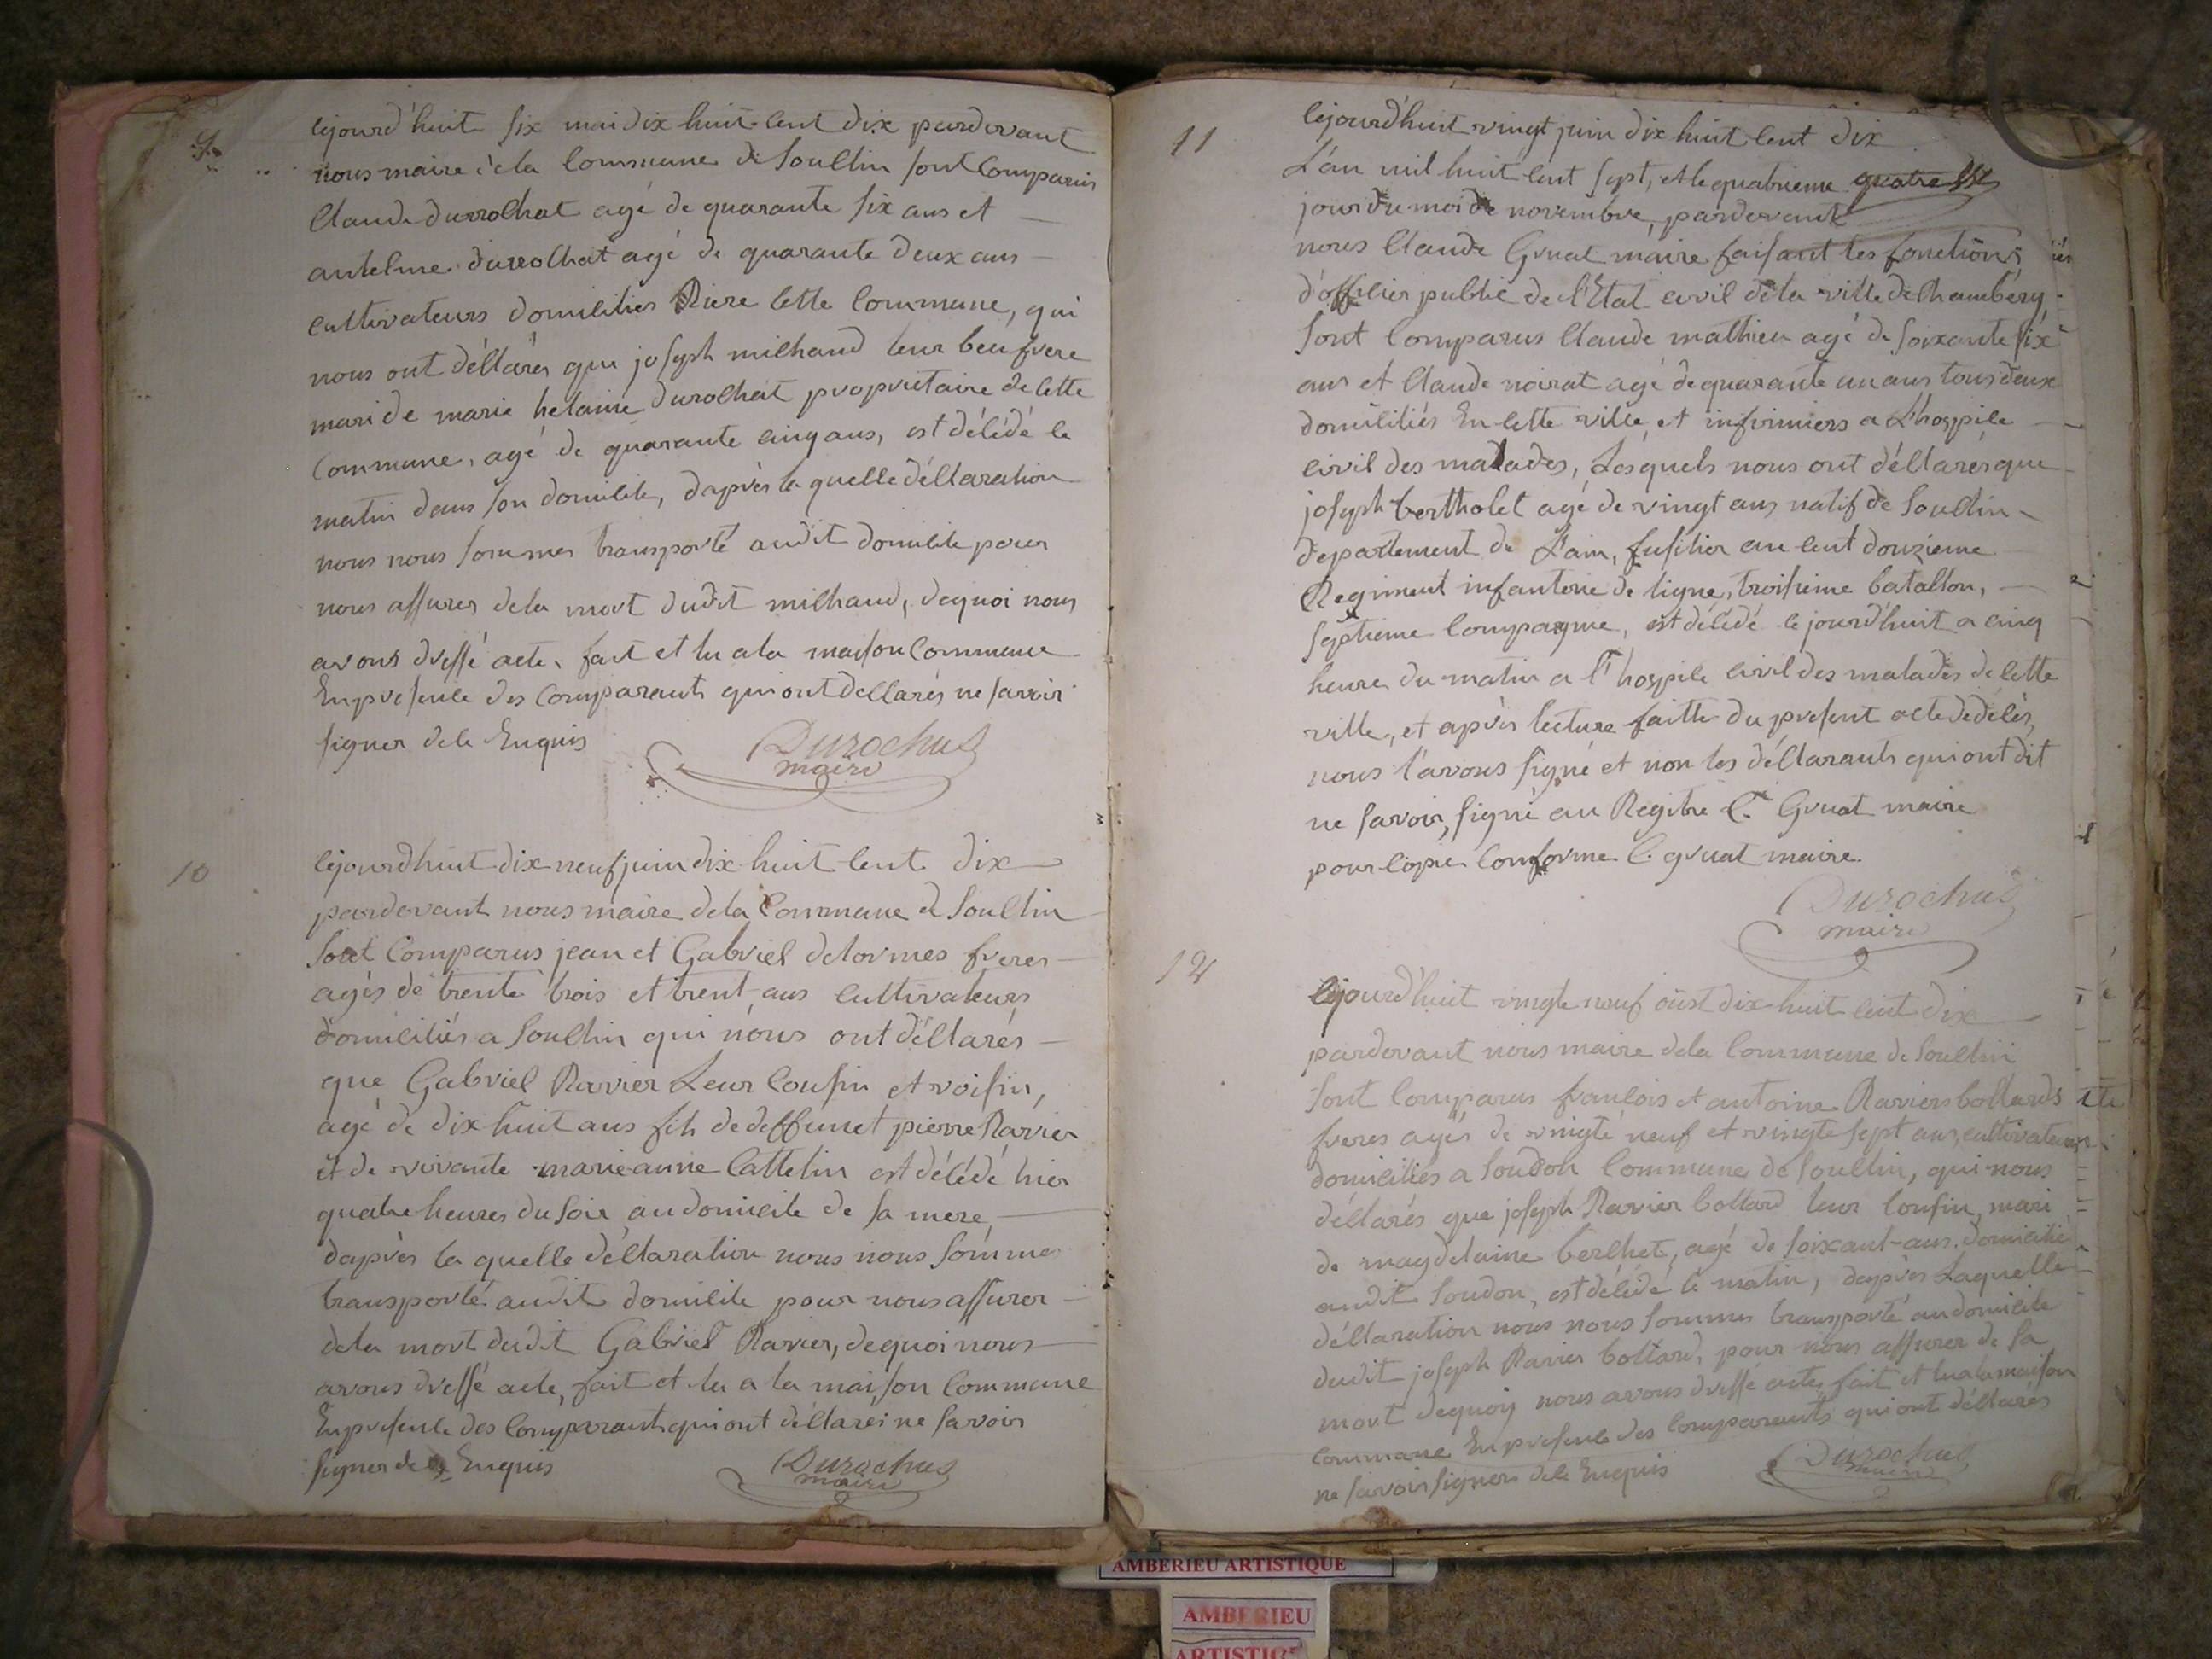 9
cejourd'huit six mai dix huit cent dix pardevant
nous maire de la Commune de Souclin sont Comparus
Claude durrochat agé de quarante six ans et
antelme durrochat agé de quarante deux ans
cultivateurs domiciliés Riere cette Commune, qui
nous ont déclarés que joseph milhand leur beu frere
mari de marie helaine durochat proprietaire de cette
Commune, agé de quarante cinq ans, est décédé ce
matin dans son domicile, dapvès la quelle déclaration
nous nous sommes transporté audit domicile pour
nous assurer dela mort dudit milhand, dequoi nous
avons dressé acte, fait et lu a la maison Commune
En presence des Comparants qui ont declarés ne savoir
signer de ce Enquis
Durochat
maire
10
cejourdhuit dix neuf juin dix huit cent dix
pardevant nous maire dela Commune de Souclin
sont Comparus jean et Gabriel delormes freres
agés de trente trois et trent ans cultivateurs
domiciliés a Souclin qui nous ont déclarés
que Gabriel Ravier Leur Cousin et voisin,
agé de dix huit ans fils de deffunet pierre Ravier
et de vivante marie anne Cattelin est décédé hier
quatre heures du soir au domicile de sa mere,
dapvès la quelle déclaration nous nous sommes
transporté audit domicile pour nous assurer
dela mort dudit Gabriel Ravier, dequoi nous
avons dressé acte, fait et lu a la maison Commune
En presence des Comparants qui ont déclarés ne savoir
signer de ce Enquis
Durochat
maire
11
Cejourdhuit vingt juin dix huit cent dix
L'an mil huit cent sept, et le quatrieme
jour du moi de novembre, pardevant
nous Claude Gruat maire faisant les fonctions
d'officier public de l'Etat civil de la ville de Chambery
sont Comparus Claude mathieu agé de soixante six
ans et Claude noirat agé de quarante un ans tous deux
domiciliés En cette ville et infirmiers a L'hospice
civil des malades, Lesquels nous ont déclarés que
joseph bertholet agé de vingt ans natif de Souclin
departement de L'ain, fusilier au cent douzieme
Regiment infanterie de ligne, troisieme batallon,
septieme Compagnie, est décédé cejourd'huit a cinq
heure du matin a l'hospice civil des malades de cette
ville, et après lecture faitte du present acte de décès,
nous l'avons signé et non les déclarants qui ont dit
ne savoir, signé au Regitre C. Gruat maire
pour Copie Conforme C. gruat maire.
Durochat
maire
12
Cejourd'huit vingte neuf oüst dix huit cent dix
pardevant nous maire dela Commune de Souclin
sont Comparus francois et antoine Raviers bottards
freres agés de vingte neuf et vingte sept ans, cultivateurs
domiciliés a Soudon Commune de Souclin, qui nous
déclarés que joseph Ravier bottard leur Cousin, mari
de magdelaine berlhet, agé de soixant ans, domicilié
audit Soudon, est décédé ce matin, dapvès Laquelle
déclaration nous nous sommes transporté au domicile
dudit joseph Ravier bottard, pour nous assurer de sa
mort dequoy nous avons dressé acte, fait et lu a la maison
Commune En presence des Comparants qui ont déclarés
ne savoir signer de ce Enquis
Durochat
maire
AMBERIEU ARTISTIQUE
AMBERIEU
ARTISTIQUE